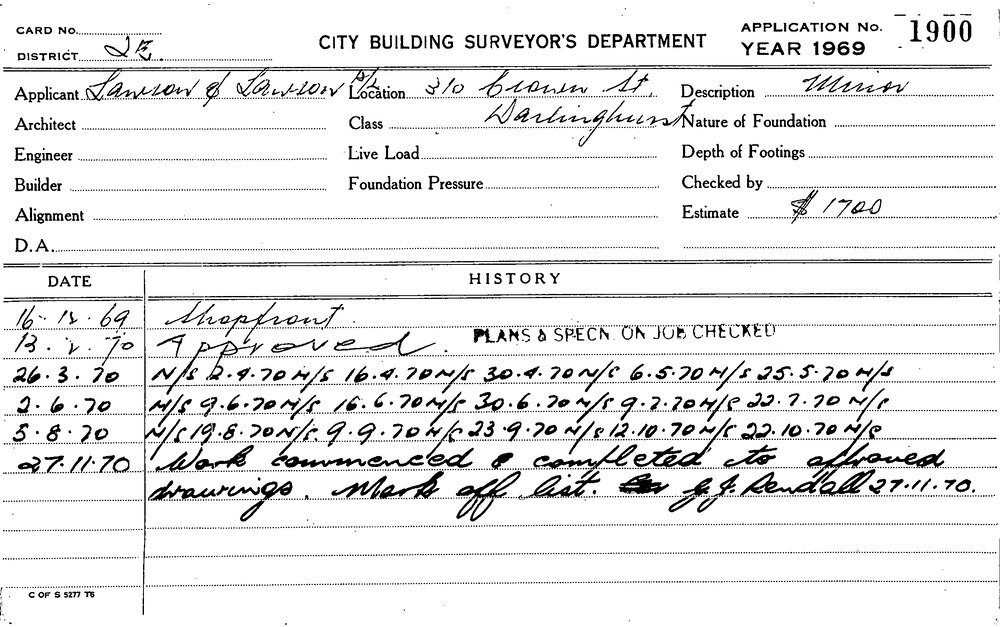 CARD No.
DISTRICT 2E.
CITY BUILDING SURVEYOR'S DEPARTMENT
APPLICATION No. 1900
YEAR 1969
Applicant Lawson & Lawson P/L Location 310 Crown St. Description Minor
Architect Class Darlinghurst Nature of Foundation
Engineer Live Load Depth of Footings
Builder Foundation Pressure Checked by
Alignment Estimate $1700
D.A.
DATE HISTORY
16.12.69 Shopfront.
13.2.70 Approved. PLANS & SPECN. ON JOB CHECKED
26.3.70 N/S 2.4.70 N/S 16.4.70 N/S 30.4.70 N/S 6.5.70 N/S 25.5.70 N/S
2.6.70 N/S 9.6.70 N/S 16.6.70 N/S 30.6.70 N/S 9.7.70 N/S 22.7.70 N/S
5.8.70 N/S 19.8.70 N/S. 9.9.70 N/S 23.9.70 N/S 12.10.70 N/S 22.10.70 N/S
27.11.70 Work commenced & completed to approved
drawings. Mark off list. G.J. Rendall 27.11.70.
C OF S 5277 T6